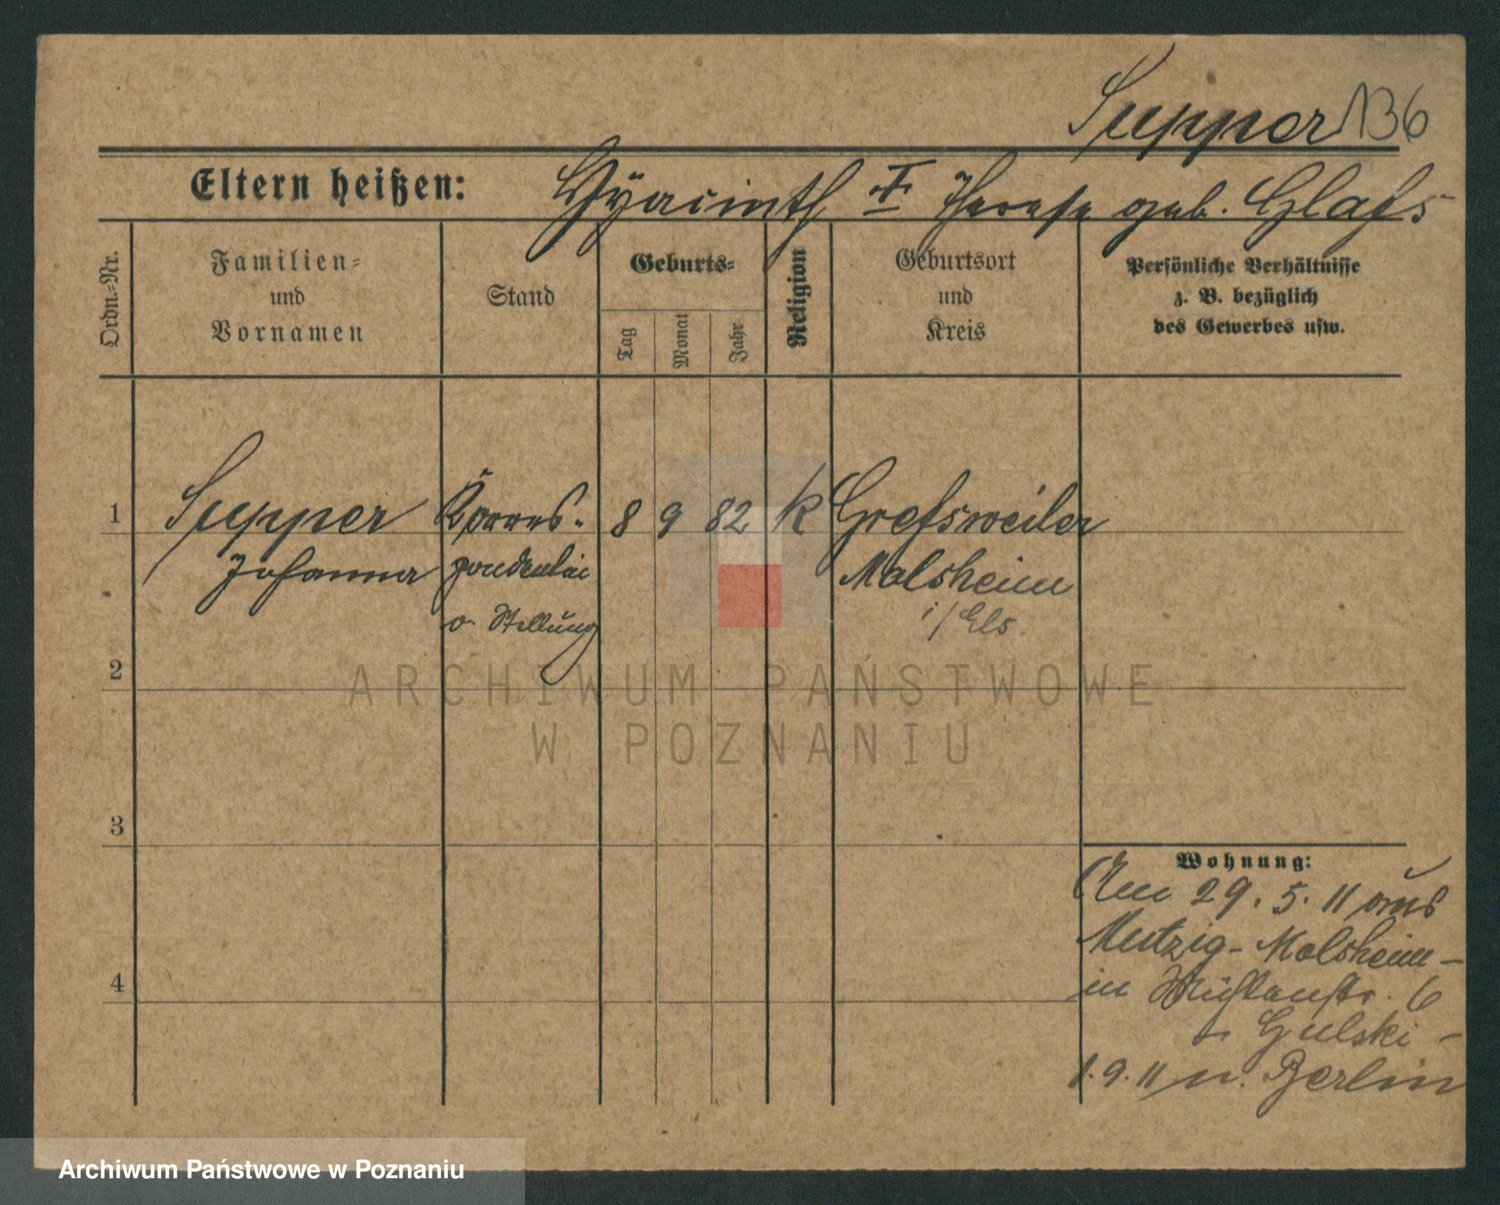 Supper 136
Eltern heißen: Hyacinth † Therese geb. Glaß
Ordn.-Nr.
Familien-
und
Vornamen
Stand
Geburts-
Tag
Monat
Jahr
Religion
Geburtsort
und
Kreis
Persönliche Verhältnisse
z. B. bezüglich
des Gewerbes usw.
1 Supper Korres- 8 9 82 k Gresweiler
Johanna pondentin Molsheim
o. Stellung i/Els.
2
ARCHIWUM PAŃSTWOWE
W POZNANIU
3
Wohnung:
Am 29. 5. 11 aus
Mutzig - Molsheim -
4
in 6
Gulski -
1. 9. 11 n. Berlin
Archiwum Państwowe w Poznaniu